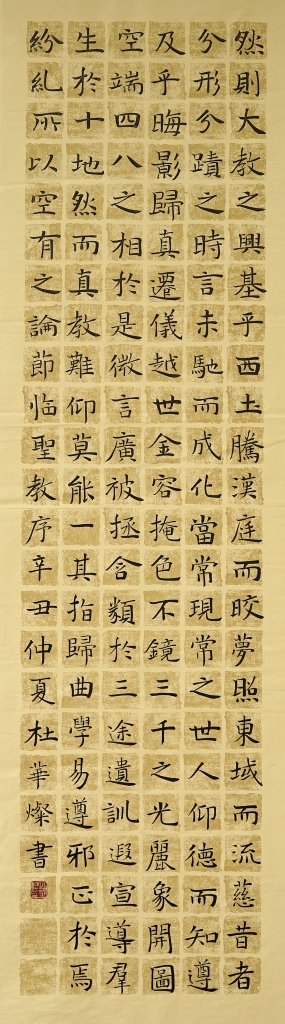 然則大教之興基乎西土騰漢庭而皎夢照東域而流慈昔者
分形分蹟之時言未馳而成化當常現常之世人仰德而知遵
及乎晦影歸真遷儀越世金容掩色不鏡三千之光麗象開圖
空端四八之相於是微言廣被拯含類於三途遺訓遐宣導羣
生於十地然而真教難仰莫能一其指歸曲學易遵邪正於焉
紛糺所以空有之論節临聖教序辛丑仲夏杜華燦書